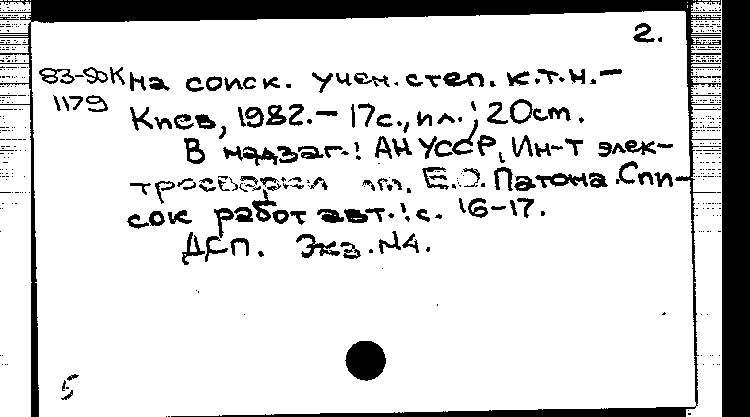 2.
83-90к на соиск. учен. степ. к.т.н.–
1179 Киев, 1982. – 17с., ил.; 20см.
В надзаг.: АН УССР, Ин-т элек-
тросварки им. Е.О. Патона. Спи-
сок работ авт.: с. 16-17.
ДСП. Экз. №4.
5